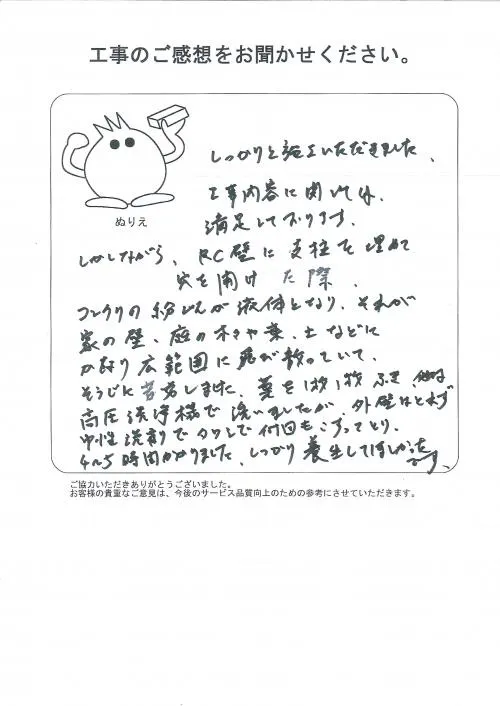 工事のご感想をお聞かせください。
しっかりと施工いただきました、
工事内容に関しては、
満足しております。
ぬりえ
しかしながら、RC壁に支柱を埋めて
穴を開けた際、
コンクリの粉じんが液体となり、それが
家の壁、庭の木々や葉、土などに
かなり広範囲に飛び散っていて、
そうじに苦労しました。葉を1枚1枚ふき、
高圧洗浄機で洗いましたが、外壁はとれず
中性洗剤でタワシで何回もこすってとり、
4〜5時間かかりました。しっかり養生してほしかった
です、
ご協力いただきありがとうございました。
お客様の貴重なご意見は、今後のサービス品質向上のための参考にさせていただきます。